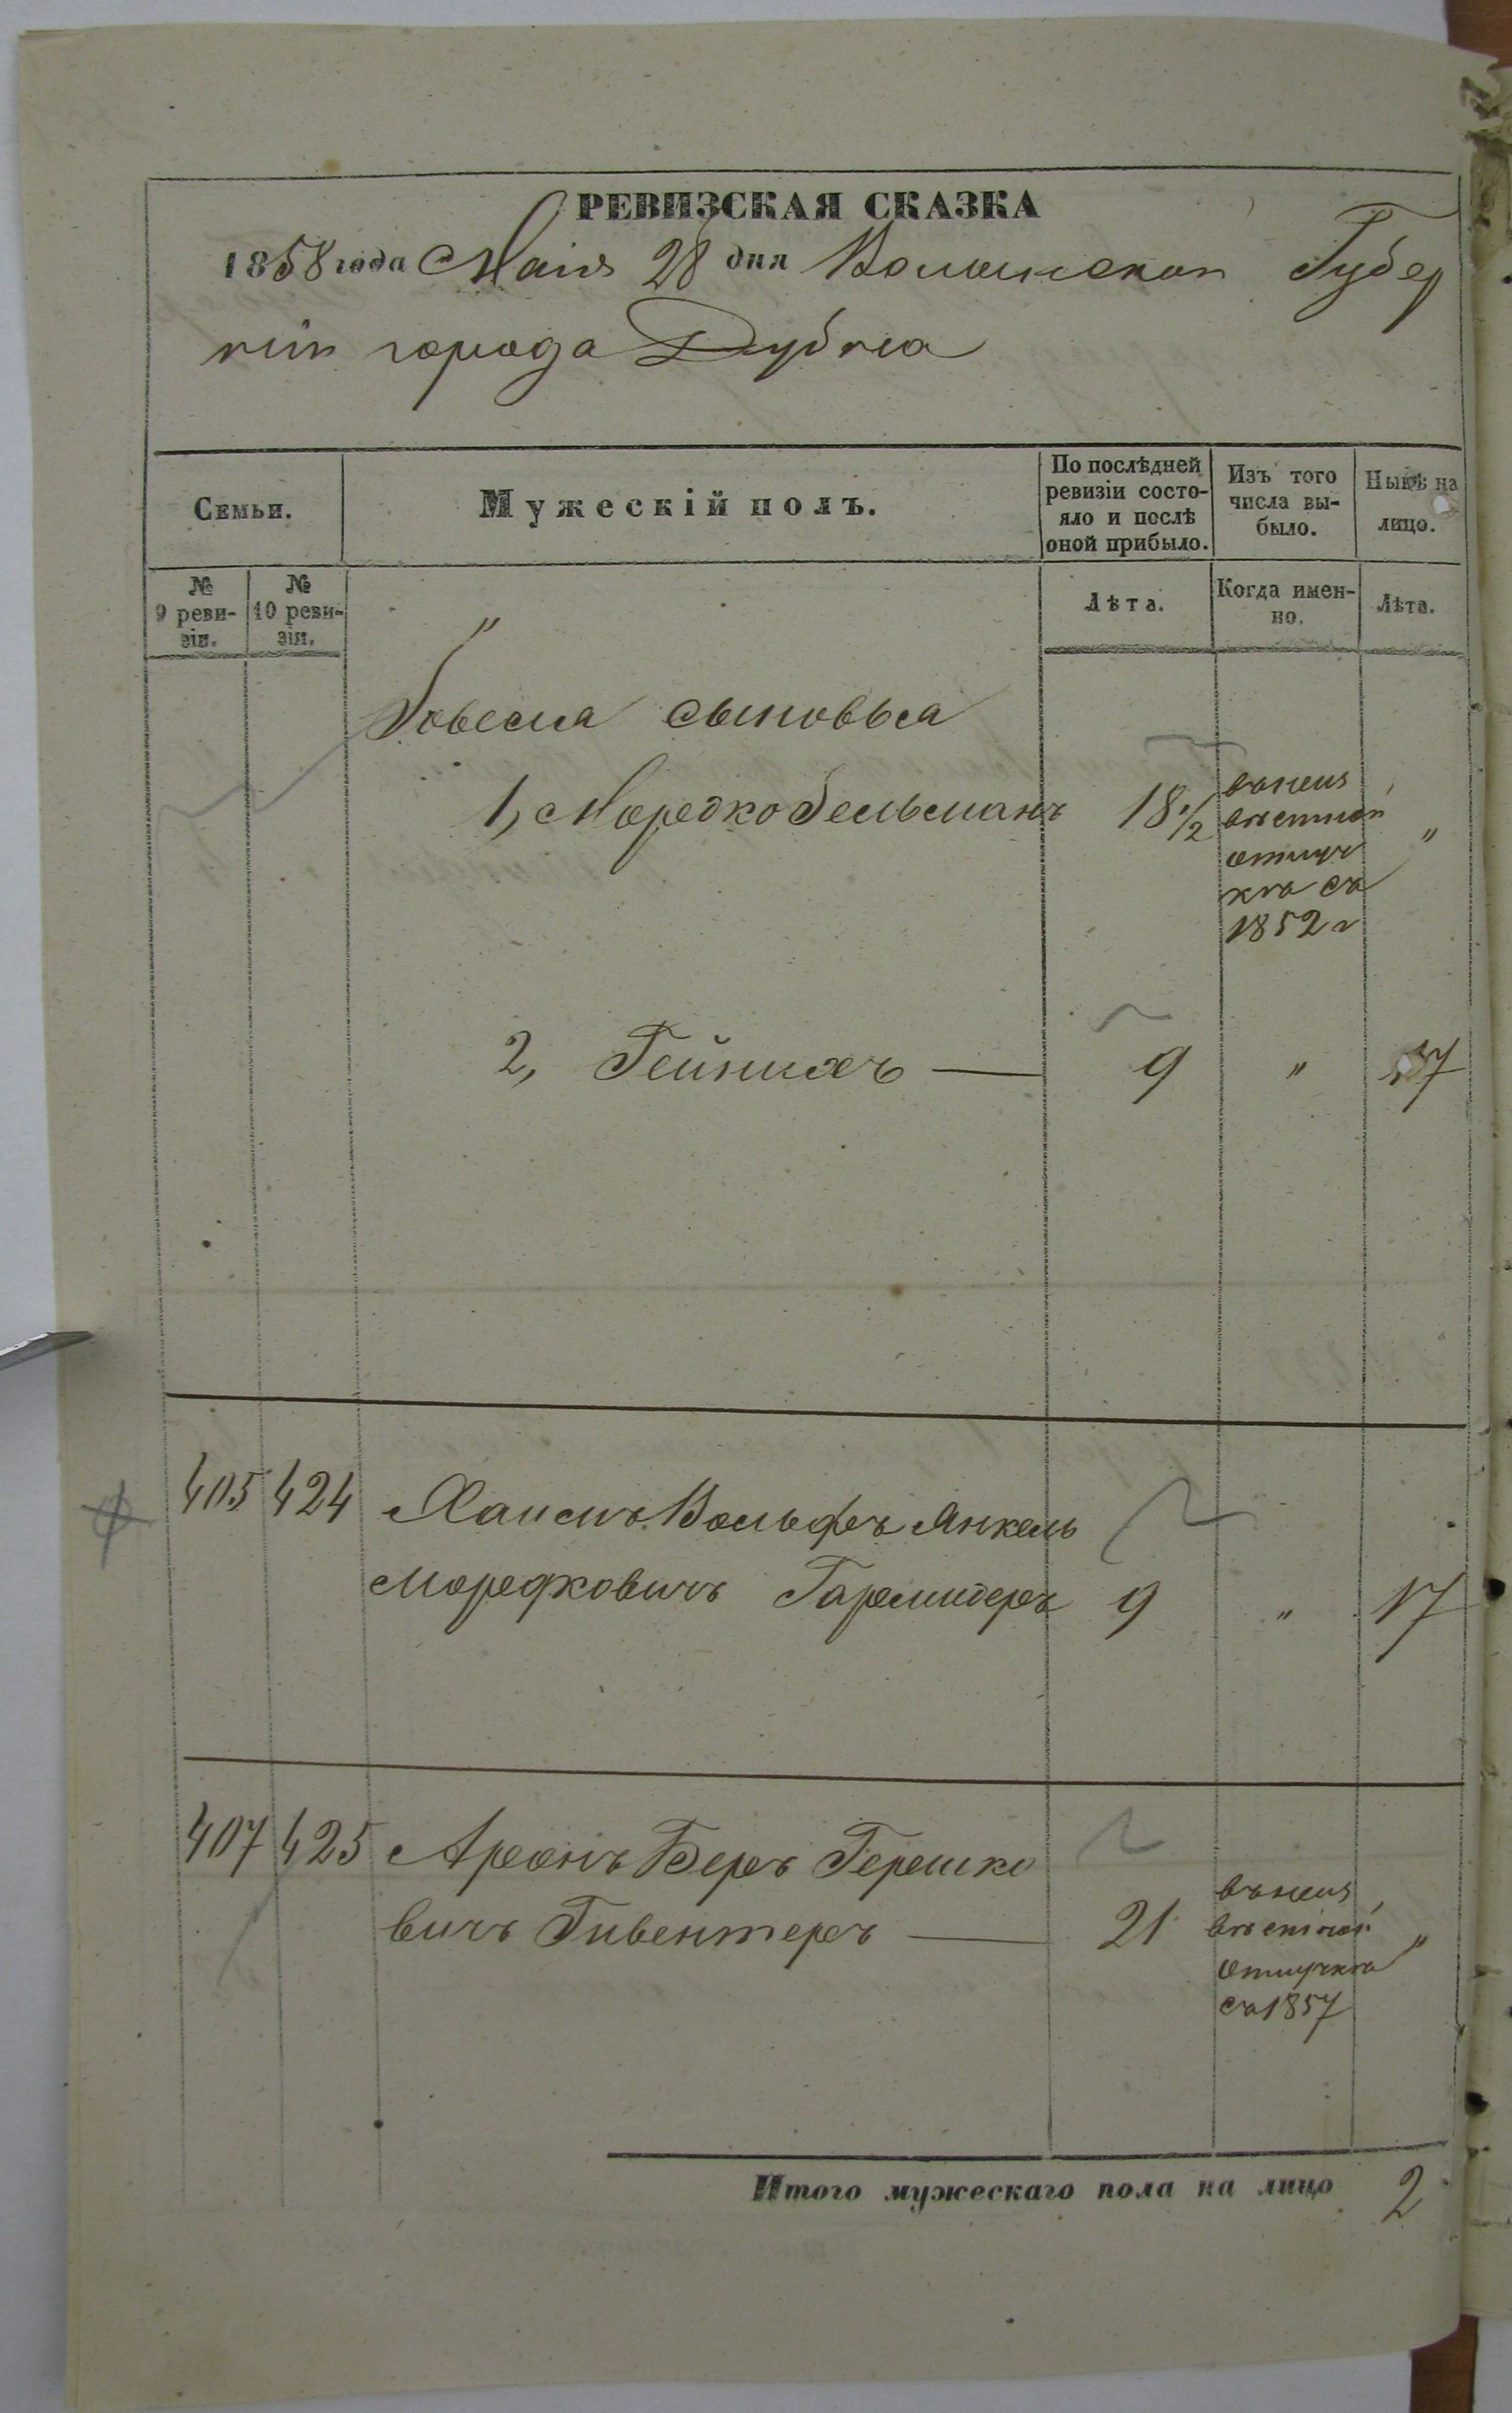 РЕВИЗСКАЯ СКАЗКА
1858 года Маія 28 дня Волынской Губер
ніи города Дубна
Семьи.
Мужескій полъ.
По послѣдней ревизіи состо-
яло и послѣ оной прибыло.
Изъ того числа вы-
было.
Нынѣ на лицо.
№ 9 реви-
зіи.
№ 10 реви-
зіи.
Лѣта.
Когда имен-
но.
Лѣта.
"
сыновья
1, Мордко Зельманъ 18 1/2 "
въ неиз
вѣстной
отлуч
кѣ съ
1852 г
2, Гейнихъ — 9 " 17
405 424 Хаимъ Вольфъ Янкель
Мордковичъ 9 " 17
407 425 Аронъ Беръ Гершко
вичъ Гивентеръ — 21 "
въ неиз
вѣстной
отлучкѣ
съ 1857
Итого мужескаго пола на лицо 2